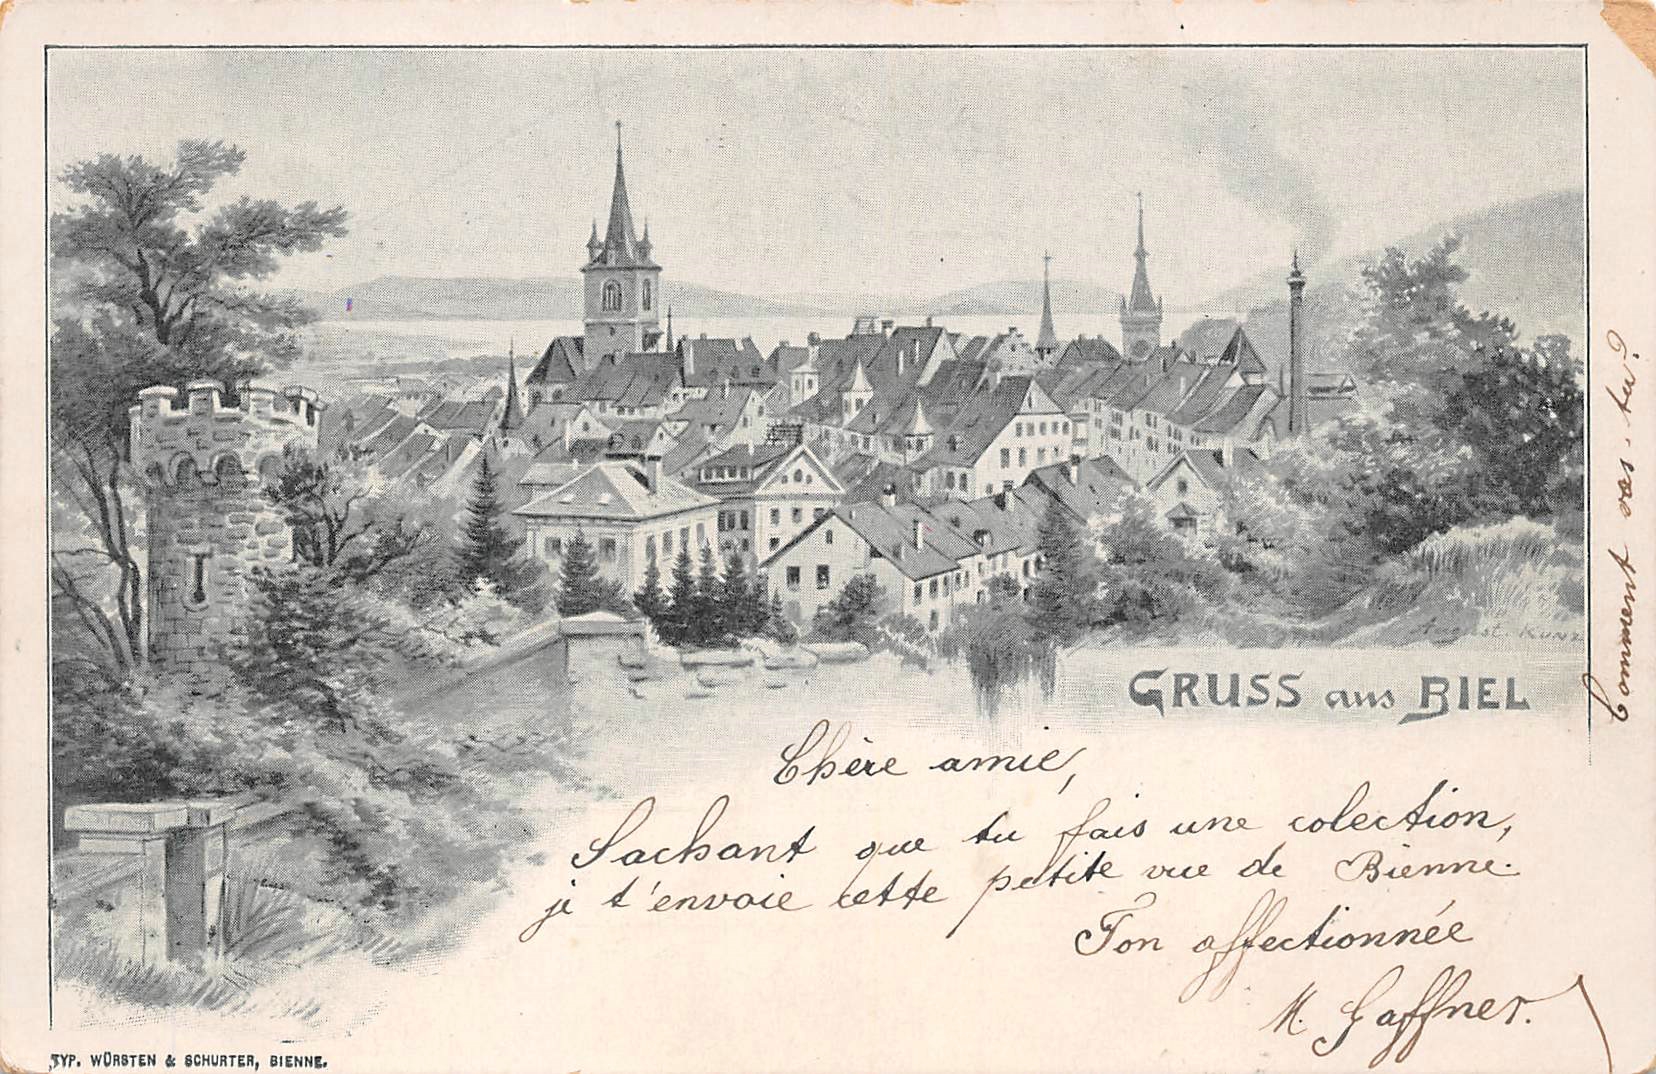 August. Kunz
GRUSS aus BIEL
Chère amie,
Sachant que tu fais une colection,
je t'envoie cette petite vue de Bienne.
Ton affectionnée
M. Gaffner.
Comment vas-tu?
TYP. WÜRSTEN & SCHURTER, BIENNE.